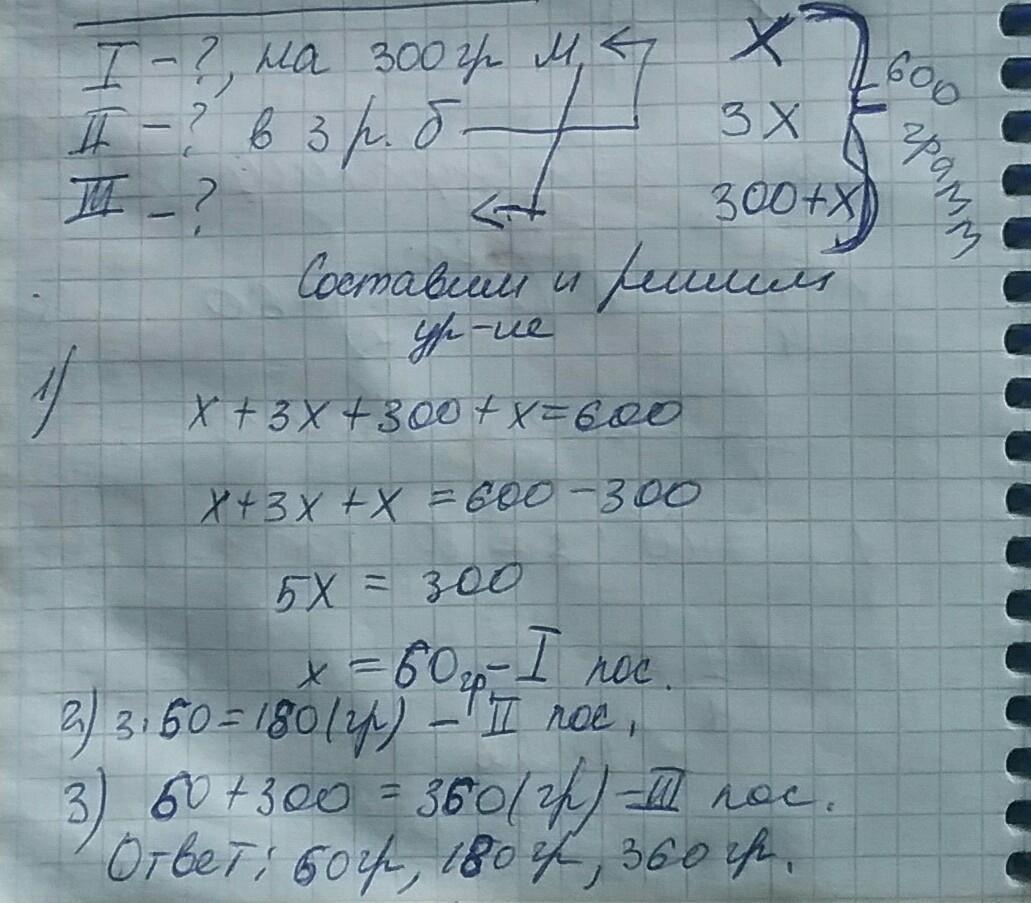 I - ?, на 300 гр м. x
II - ? в 3 р. б 3x
III - ? 300+x
600 грамм
Составим и решим
ур-ие
1) x + 3x + 300 + x = 600
x + 3x + x = 600 - 300
5x = 300
x = 60 гр - I пос.
2) 3 · 60 = 180 (гр) - II пос.
3) 60 + 300 = 360 (гр) - III пос.
Ответ: 60 гр, 180 гр, 360 гр.